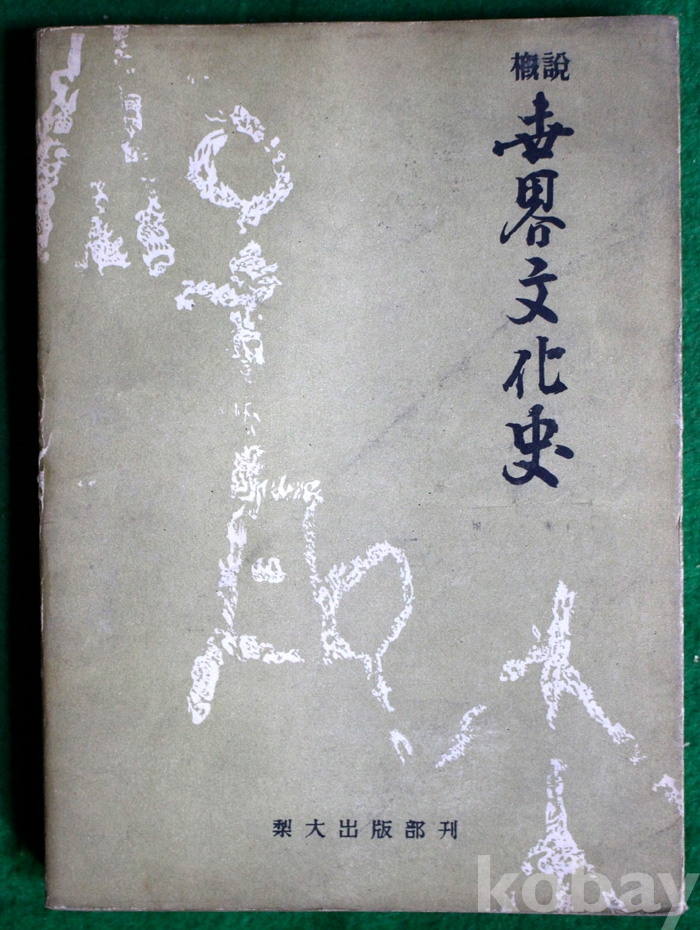 概說
世界文化史
梨大出版部刊
kobay